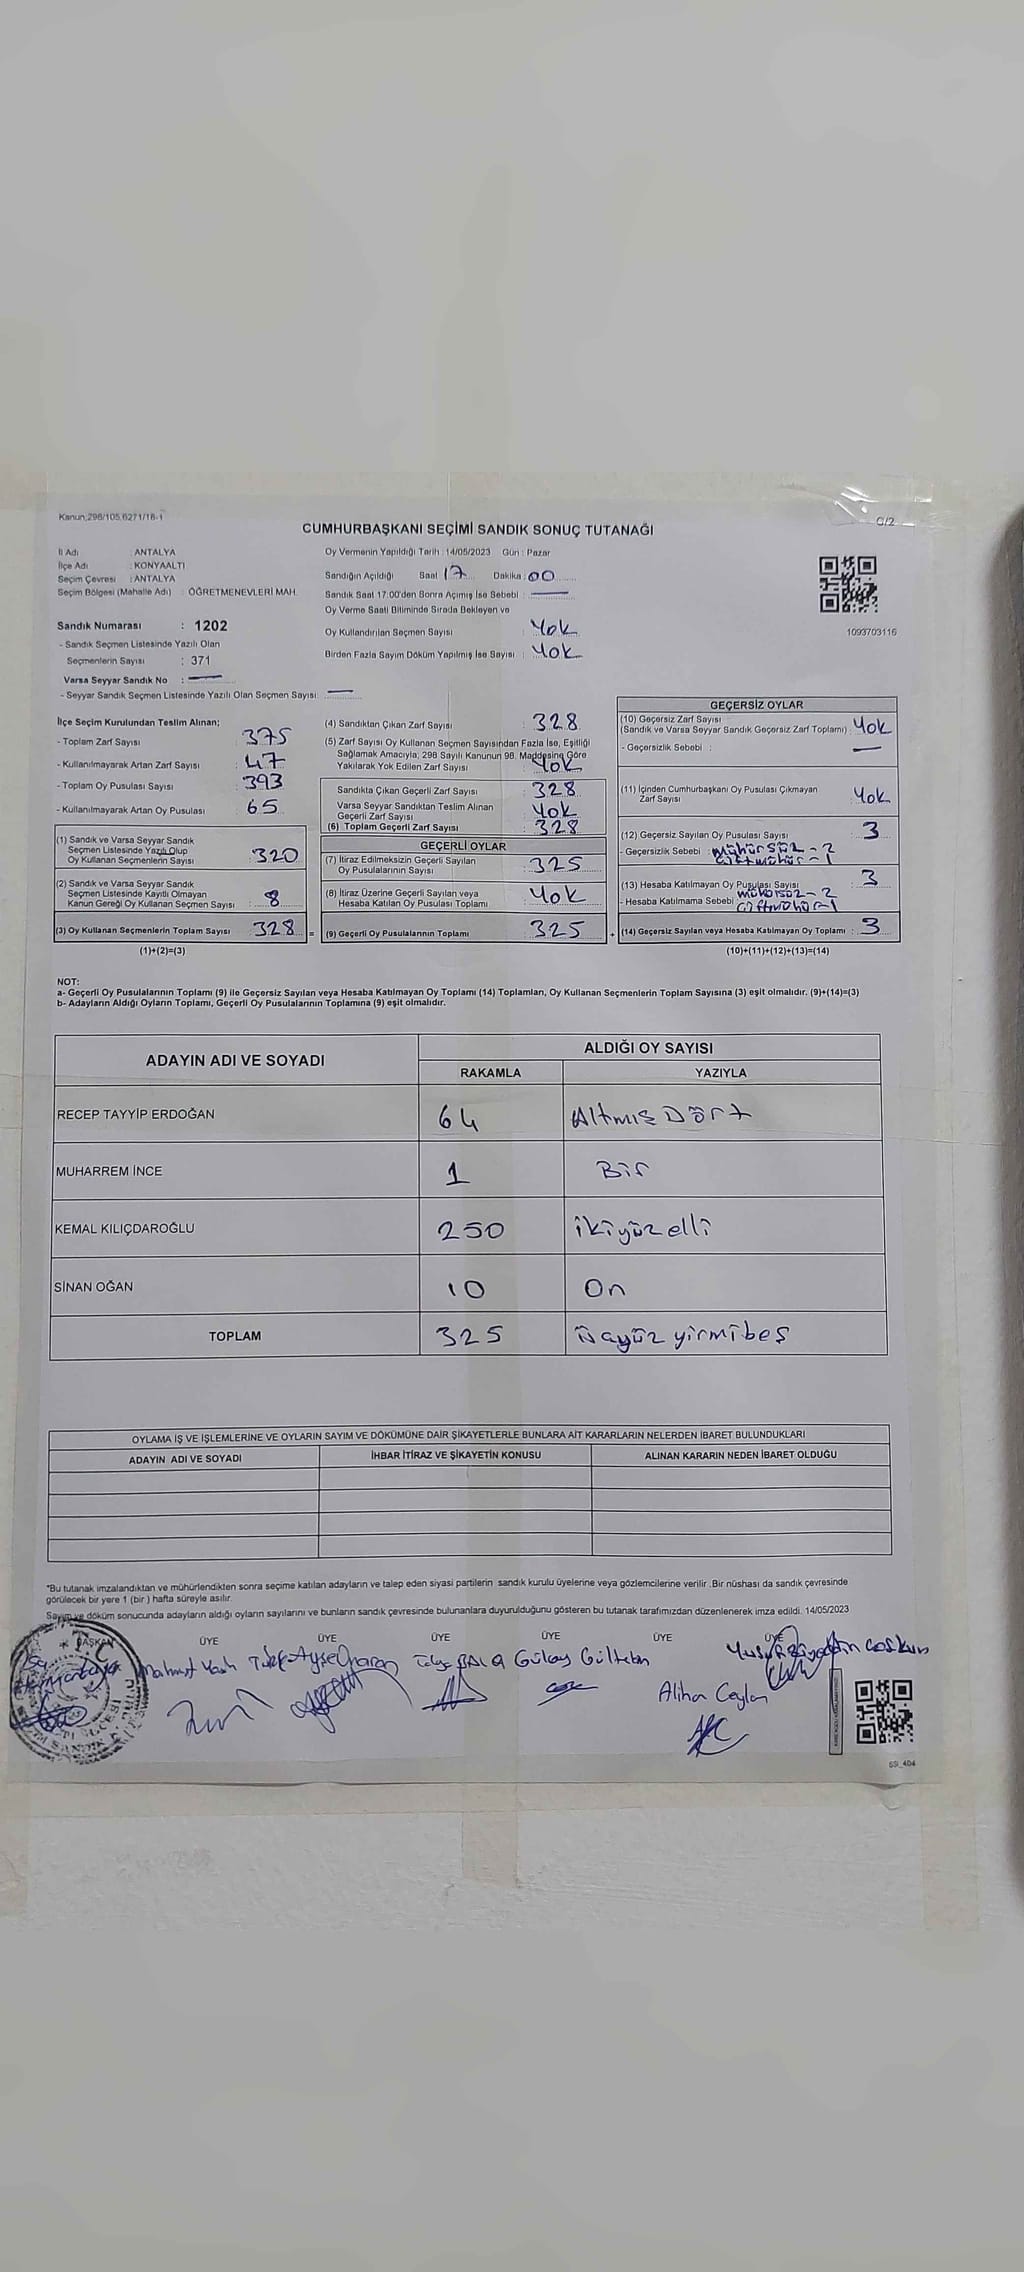 Kanun;298/105,6271/18-1
C/2
CUMHURBAŞKANI SEÇİMİ SANDIK SONUÇ TUTANAĞI
İl Adı : ANTALYA
İlçe Adı : KONYAALTI
Seçim Çevresi : ANTALYA
Seçim Bölgesi (Mahalle Adı) : ÖĞRETMENEVLERİ MAH.
Sandık Numarası : 1202
- Sandık Seçmen Listesinde Yazılı Olan
Seçmenlerin Sayısı : 371
Varsa Seyyar Sandık No : —
- Seyyar Sandık Seçmen Listesinde Yazılı Olan Seçmen Sayısı: —
Oy Vermenin Yapıldığı Tarih : 14/05/2023 Gün : Pazar
Sandığın Açıldığı Saat 17 Dakika : 00
Sandık Saat 17:00'den Sonra Açımış İse Sebebi : —
Oy Verme Saati Bitiminde Sırada Bekleyen ve
Oy Kullandırılan Seçmen Sayısı : Yok
Birden Fazla Sayım Döküm Yapılmış İse Sayısı : Yok
1093703116
İlçe Seçim Kurulundan Teslim Alınan;
- Toplam Zarf Sayısı : 375
- Kullanılmayarak Artan Zarf Sayısı : 47
- Toplam Oy Pusulası Sayısı : 393
- Kullanılmayarak Artan Oy Pusulası : 65
(1) Sandık ve Varsa Seyyar Sandık
Seçmen Listesinde Yazılı Olup
Oy Kullanan Seçmenlerin Sayısı : 320
(2) Sandık ve Varsa Seyyar Sandık
Seçmen Listesinde Kayıtlı Olmayan
Kanun Gereği Oy Kullanan Seçmen Sayısı : 8
(3) Oy Kullanan Seçmenlerin Toplam Sayısı : 328 =
(1)+(2)=(3)
(4) Sandıktan Çıkan Zarf Sayısı : 328
(5) Zarf Sayısı Oy Kullanan Seçmen Sayısından Fazla İse, Eşitliği
Sağlamak Amacıyla; 298 Sayılı Kanunun 98. Maddesine Göre
Yakılarak Yok Edilen Zarf Sayısı : Yok
Sandıkta Çıkan Geçerli Zarf Sayısı : 328
Varsa Seyyar Sandıktan Teslim Alınan
Geçerli Zarf Sayısı : Yok
(6) Toplam Geçerli Zarf Sayısı : 328
GEÇERLİ OYLAR
(7) İtiraz Edilmeksizin Geçerli Sayılan
Oy Pusulalarının Sayısı : 325
(8) İtiraz Üzerine Geçerli Sayılan veya
Hesaba Katılan Oy Pusulası Toplamı : Yok
(9) Geçerli Oy Pusulalarının Toplamı : 325 +
GEÇERSİZ OYLAR
(10) Geçersiz Zarf Sayısı
(Sandık ve Varsa Seyyar Sandık Geçersiz Zarf Toplamı) : Yok
- Geçersizlik Sebebi : —
(11) İçinden Cumhurbaşkanı Oy Pusulası Çıkmayan
Zarf Sayısı : Yok
(12) Geçersiz Sayılan Oy Pusulası Sayısı : 3
- Geçersizlik Sebebi : Mühürsüz - 2
Çiftmühür - 1
(13) Hesaba Katılmayan Oy Pusulası Sayısı : 3
- Hesaba Katılmama Sebebi : Mühürsüz - 2
Çiftmühür - 1
(14) Geçersiz Sayılan veya Hesaba Katılmayan Oy Toplamı : 3
(10)+(11)+(12)+(13)=(14)
NOT:
a- Geçerli Oy Pusulalarının Toplamı (9) ile Geçersiz Sayılan veya Hesaba Katılmayan Oy Toplamı (14) Toplamları, Oy Kullanan Seçmenlerin Toplam Sayısına (3) eşit olmalıdır. (9)+(14)=(3)
b- Adayların Aldığı Oyların Toplamı, Geçerli Oy Pusulalarının Toplamına (9) eşit olmalıdır.
ADAYIN ADI VE SOYADI ALDIĞI OY SAYISI
RAKAMLA YAZIYLA
RECEP TAYYİP ERDOĞAN 64 Altmış Dört
MUHARREM İNCE 1 Bir
KEMAL KILIÇDAROĞLU 250 ikiyüzelli
SİNAN OĞAN 10 On
TOPLAM 325 Üçyüz yirmibeş
OYLAMA İŞ VE İŞLEMLERİNE VE OYLARIN SAYIM VE DÖKÜMÜNE DAİR ŞİKAYETLERLE BUNLARA AİT KARARLARIN NELERDEN İBARET BULUNDUKLARI
ADAYIN ADI VE SOYADI İHBAR İTİRAZ VE ŞİKAYETİN KONUSU ALINAN KARARIN NEDEN İBARET OLDUĞU
*Bu tutanak imzalandıktan ve mühürlendikten sonra seçime katılan adayların ve talep eden siyasi partilerin sandık kurulu üyelerine veya gözlemcilerine verilir .Bir nüshası da sandık çevresinde
görülecek bir yere 1 (bir ) hafta süreyle asılır.
Sayım ve döküm sonucunda adayların aldığı oyların sayılarını ve bunların sandık çevresinde bulunanlara duyurulduğunu gösteren bu tutanak tarafımızdan düzenlenerek imza edildi. 14/05/2023
BAŞKAN ÜYE ÜYE ÜYE ÜYE ÜYE ÜYE
Mahmut Gülay Gültekin Coşkun
Alihan Ceylan
6SI_404